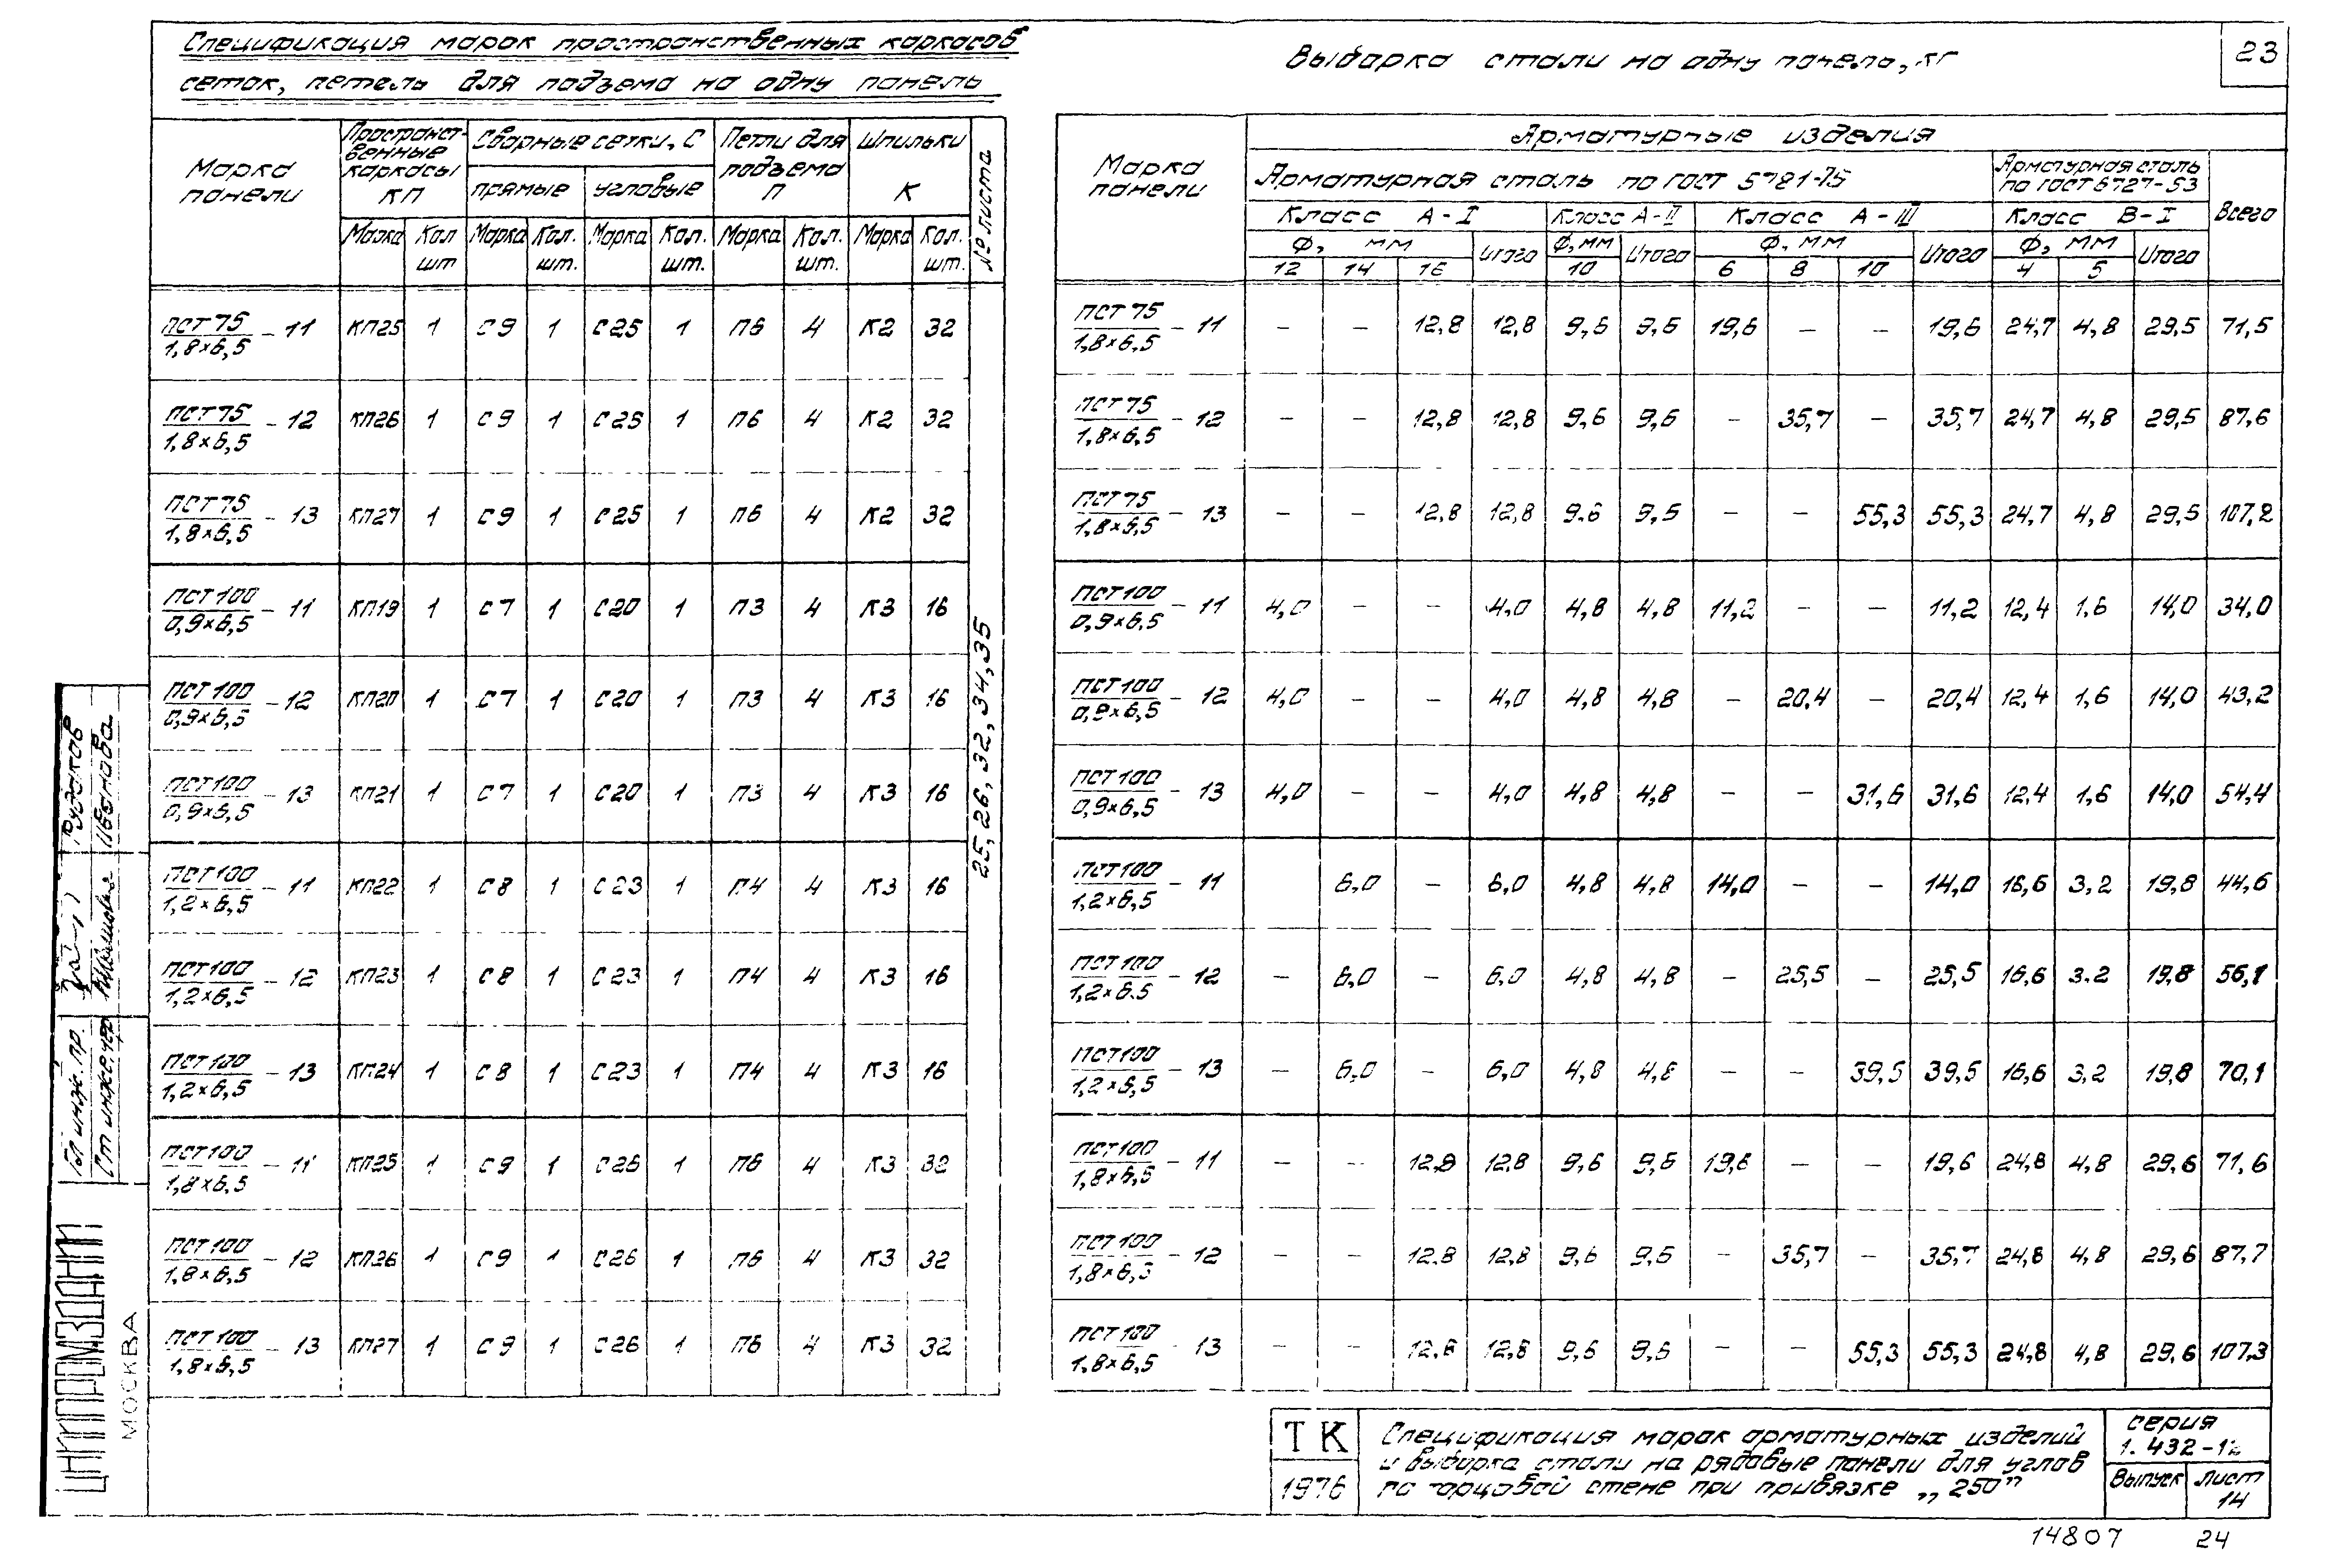 23
Спецификация марок пространственных каркасов
сеток, петель для подъема на одну панель
Марка панели | Пространст-венные каркасы КП | Сварные сетки, С | Петли для подъема П | Шпильки К | № листа
прямые | угловые
Марка | Кол шт | Марка | Кол. шт. | Марка | Кол. шт. | Марка | Кол. шт. | Марка | Кол. шт.
ПСТ 75 / 1,8×6,5 – 11 | КП25 | 1 | С9 | 1 | С25 | 1 | П6 | 4 | К2 | 32
ПСТ 75 / 1,8×6,5 – 12 | КП26 | 1 | С9 | 1 | С25 | 1 | П6 | 4 | К2 | 32
ПСТ 75 / 1,8×6,5 – 13 | КП27 | 1 | С9 | 1 | С25 | 1 | П6 | 4 | К2 | 32
ПСТ 100 / 0,9×6,5 – 11 | КП19 | 1 | С7 | 1 | С20 | 1 | П3 | 4 | К3 | 16
ПСТ 100 / 0,9×6,5 – 12 | КП20 | 1 | С7 | 1 | С20 | 1 | П3 | 4 | К3 | 16
ПСТ 100 / 0,9×6,5 – 13 | КП21 | 1 | С7 | 1 | С20 | 1 | П3 | 4 | К3 | 16
ПСТ 100 / 1,2×6,5 – 11 | КП22 | 1 | С8 | 1 | С23 | 1 | П4 | 4 | К3 | 16
ПСТ 100 / 1,2×6,5 – 12 | КП23 | 1 | С8 | 1 | С23 | 1 | П4 | 4 | К3 | 16
ПСТ 100 / 1,2×6,5 – 13 | КП24 | 1 | С8 | 1 | С23 | 1 | П4 | 4 | К3 | 16
ПСТ 100 / 1,8×6,5 – 11 | КП25 | 1 | С9 | 1 | С26 | 1 | П6 | 4 | К3 | 32
ПСТ 100 / 1,8×6,5 – 12 | КП26 | 1 | С9 | 1 | С26 | 1 | П6 | 4 | К3 | 32
ПСТ 100 / 1,8×6,5 – 13 | КП27 | 1 | С9 | 1 | С26 | 1 | П6 | 4 | К3 | 32
25, 26, 32, 34, 35
Выборка стали на одну панель, кг
Марка панели | Арматурные изделия | Всего
Арматурная сталь по ГОСТ 5781-75 | Арматурная сталь по ГОСТ 6727-53
Класс А-I | Класс А-II | Класс А-III | Класс В-I
Ф, мм | Итого | Ф, мм | Итого | Ф, мм | Итого | Ф, мм | Итого
12 | 14 | 16 | 10 | 6 | 8 | 10 | 4 | 5
ПСТ 75 / 1,8×6,5 – 11 | – | – | 12,8 | 12,8 | 9,6 | 9,6 | 19,6 | – | – | 19,6 | 24,7 | 4,8 | 29,5 | 71,5
ПСТ 75 / 1,8×6,5 – 12 | – | – | 12,8 | 12,8 | 9,6 | 9,6 | – | 35,7 | – | 35,7 | 24,7 | 4,8 | 29,5 | 87,6
ПСТ 75 / 1,8×6,5 – 13 | – | – | 12,8 | 12,8 | 9,6 | 9,6 | – | – | 55,3 | 55,3 | 24,7 | 4,8 | 29,5 | 107,2
ПСТ 100 / 0,9×6,5 – 11 | 4,0 | – | – | 4,0 | 4,8 | 4,8 | 11,2 | – | – | 11,2 | 12,4 | 1,6 | 14,0 | 34,0
ПСТ 100 / 0,9×6,5 – 12 | 4,0 | – | – | 4,0 | 4,8 | 4,8 | – | 20,4 | – | 20,4 | 12,4 | 1,6 | 14,0 | 43,2
ПСТ 100 / 0,9×6,5 – 13 | 4,0 | – | – | 4,0 | 4,8 | 4,8 | – | – | 31,6 | 31,6 | 12,4 | 1,6 | 14,0 | 54,4
ПСТ 100 / 1,2×6,5 – 11 | | 6,0 | – | 6,0 | 4,8 | 4,8 | 14,0 | – | – | 14,0 | 16,6 | 3,2 | 19,8 | 44,6
ПСТ 100 / 1,2×6,5 – 12 | – | 6,0 | – | 6,0 | 4,8 | 4,8 | – | 25,5 | – | 25,5 | 16,6 | 3,2 | 19,8 | 56,1
ПСТ 100 / 1,2×6,5 – 13 | – | 6,0 | – | 6,0 | 4,8 | 4,8 | – | – | 39,5 | 39,5 | 16,6 | 3,2 | 19,8 | 70,1
ПСТ 100 / 1,8×6,5 – 11 | – | – | 12,8 | 12,8 | 9,6 | 9,6 | 19,6 | – | – | 19,6 | 24,8 | 4,8 | 29,6 | 71,6
ПСТ 100 / 1,8×6,5 – 12 | – | – | 12,8 | 12,8 | 9,6 | 9,6 | – | 35,7 | – | 35,7 | 24,8 | 4,8 | 29,6 | 87,7
ПСТ 100 / 1,8×6,5 – 13 | – | – | 12,8 | 12,8 | 9,6 | 9,6 | – | – | 55,3 | 55,3 | 24,8 | 4,8 | 29,6 | 107,3
Гл инж. пр. Рудаков
Ст инженер Иванова
ЦНИИПРОМЗДАНИЙ
МОСКВА
ТК
1976
Спецификация марок арматурных изделий
и выборка стали на рядовые панели для углов
по торцовой стене при привязке „250"
серия
1.432-12
Выпуск
лист
14
14807 24